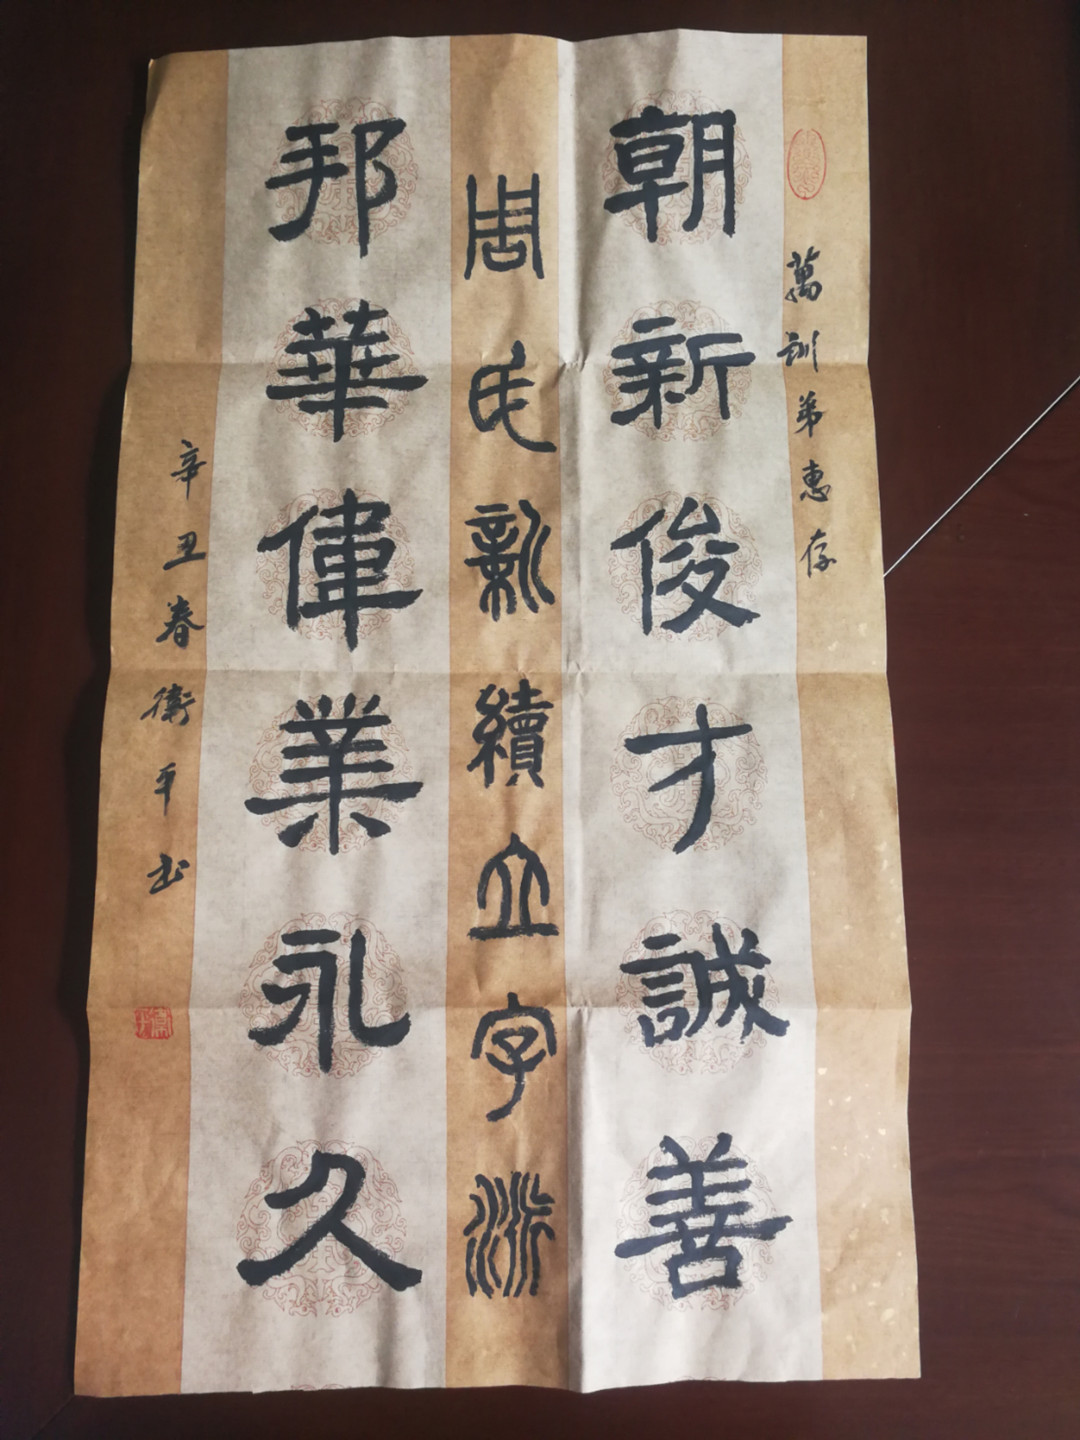 萬訓弟惠存
朝新俊才誠善
周氏新續立字派
邦華偉業永久
辛丑春衛平书